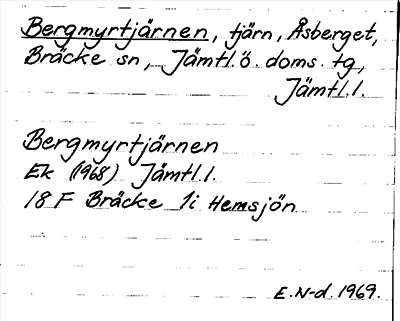 Bergmyrtjärnen, tjärn, Åsberget,
Bräcke sn, Jämtl.ö. doms. tg,
Jämtl.l.
Bergmyrtjärnen
Ek (1968) Jämtl.l.
18 F Bräcke 1i Hemsjön
E.N-d. 1969.